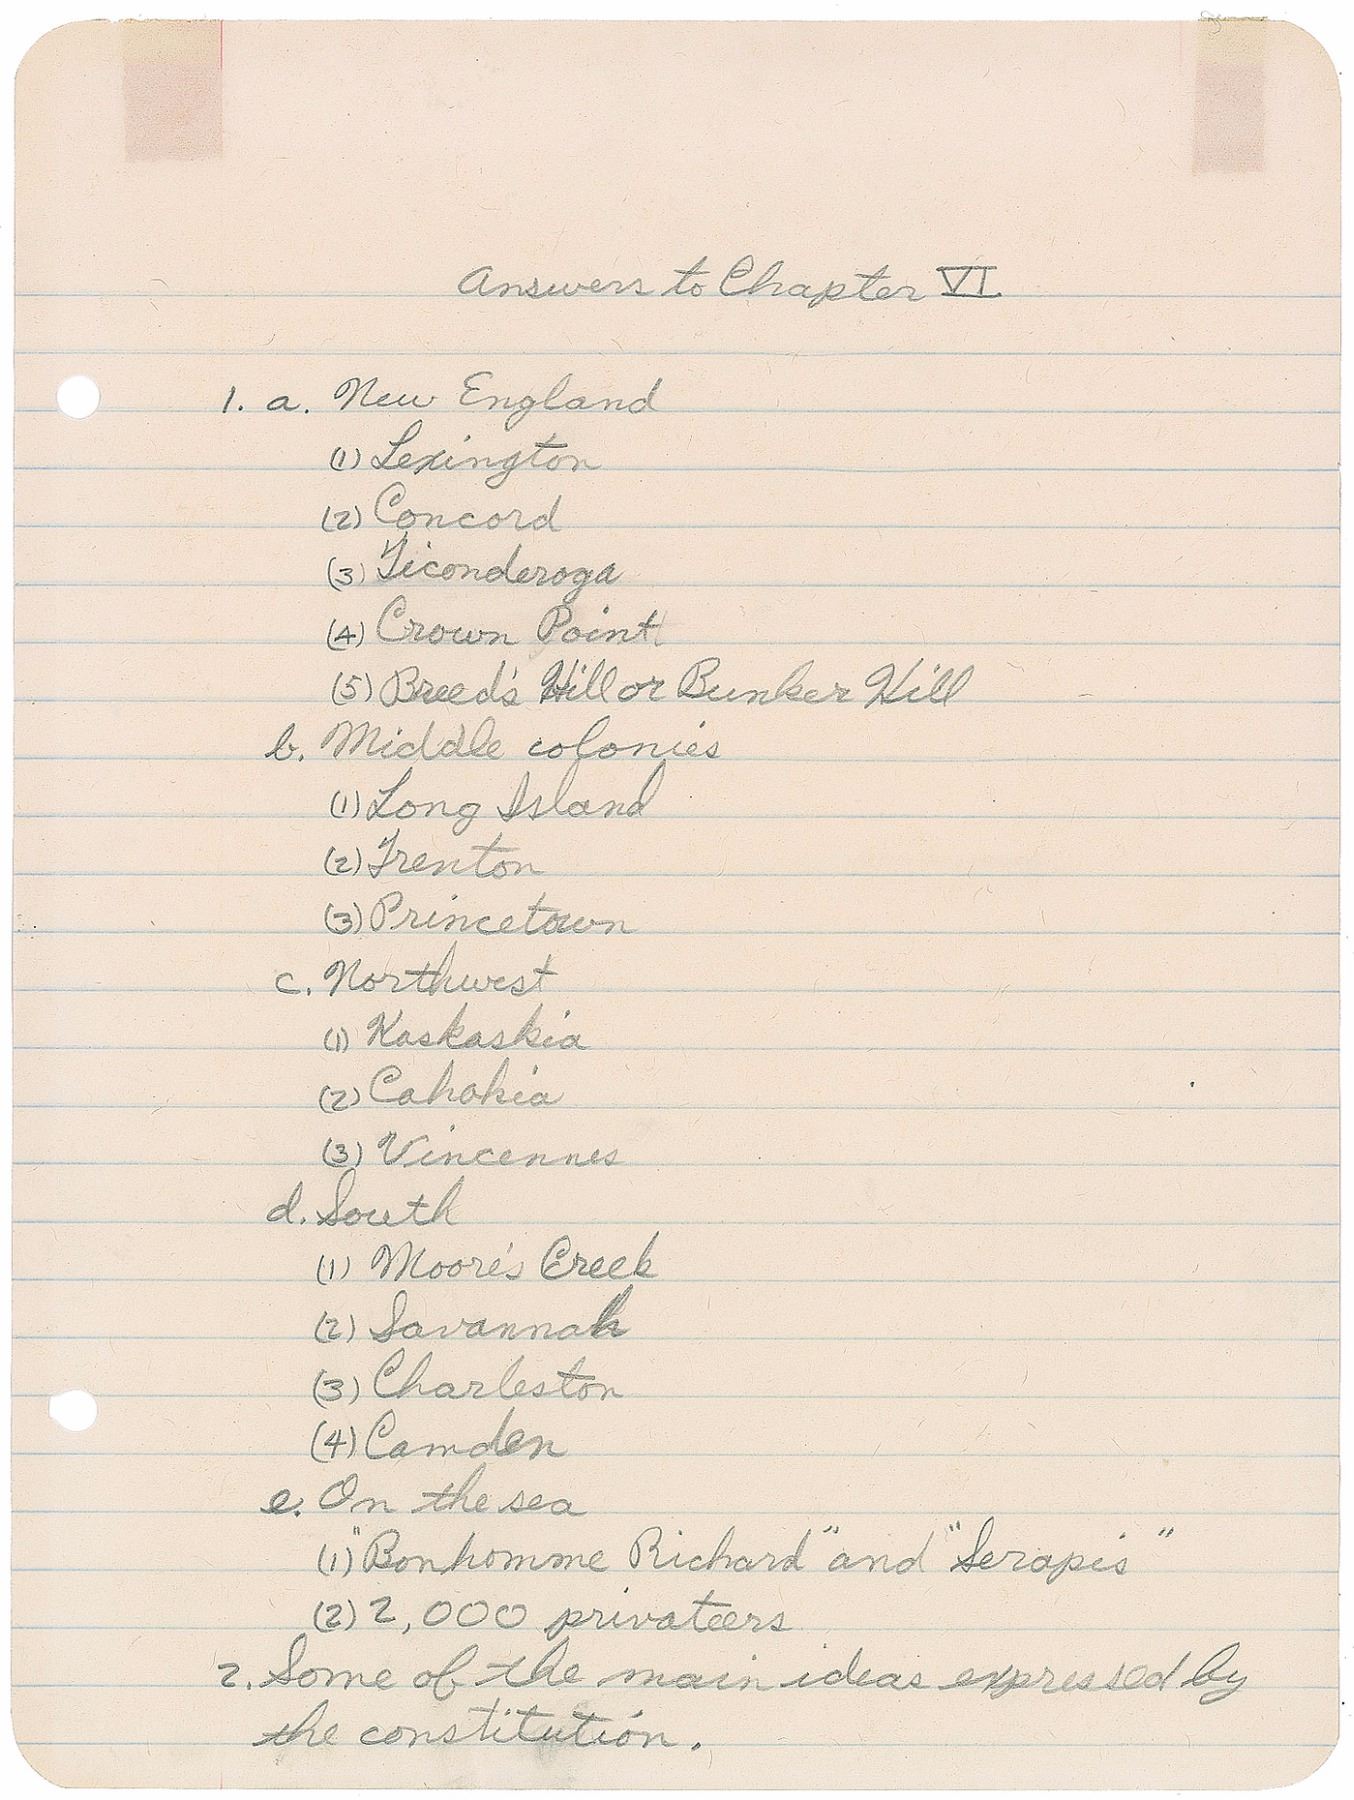 Answers to Chapter VI
1. a. New England
(1) Lexington
(2) Concord
(3) Ticonderoga
(4) Crown Point
(5) Breed's Hill or Bunker Hill
b. Middle colonies
(1) Long Island
(2) Trenton
(3) Princetown
c. Northwest
(1) Kaskaskia
(2) Cahokia
(3) Vincennes
d. South
(1) Moore's Creek
(2) Savannah
(3) Charleston
(4) Camden
e. On the sea
(1) "Bonhomme Richard" and "Serapis"
(2) 2,000 privateers
2. Some of the main ideas expressed by
the constitution.